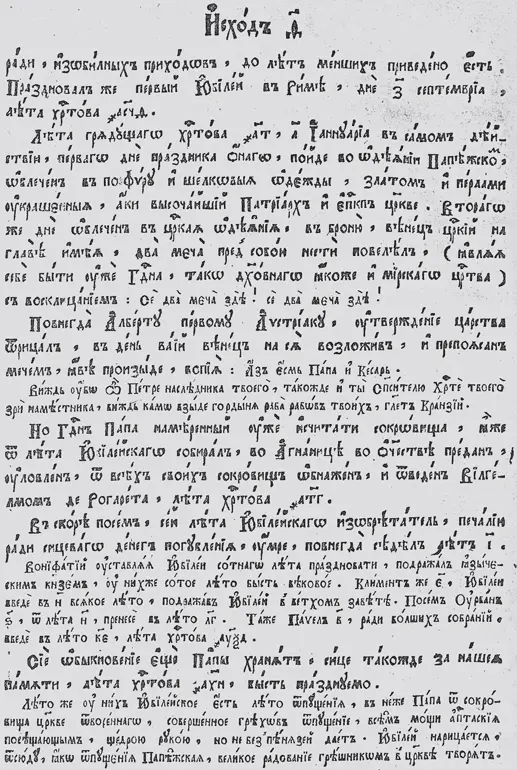 Исходъ
ради, изѡбилныхъ приходѡвъ, до лѣтъ менших̾ приведено єсть.
Праздновал же первый Юбілей въ Римѣ, днѐ з҃ септемврїа,
лѣта хр҃това
Лѣта грядущагѡ хр҃това ҂ат҃, а҃ Іаннуарїа въ самом дѣй-
ствїи, первагѡ днѐ праздника ѻнагѡ, пойде во ѡдѣѧнїи Папѣжском,
ѡблечен въ порфѵру и шелковыѧ ѡдежды, златом и перлами
ѹкрашенныѧ, аки высочайшїй Патрїархъ и єпⷭ҇кпъ церкве. Вторагѡ
же дне ѡблечен въ цр҃каѧ ѡдѣѧнїѧ, въ броню, вѣнецъ цр҃кїй на
главѣ имѣѧ, два меча пред собою нести повелѣлъ, (ѩвлѧѧ
себе быти ѹже Гдⷭ҇на, такѡ дх҃овнагѡ ѩкоже и мїрскагѡ црⷭ҇тва)
съ восклицанїем: Сѐ два меча здѣ! сѐ два меча здѣ!
Повнегда Алберту первому Аѵстрїаку, ѹтвержденїе царства
ѿрицалъ, въ день ваїй вѣнецъ на сѧ возложив, и препоѧсан
мечем, ѩвѣ произыде, вопїѧ: Аз єсмь Папа и Кесарь.
Виждь ѹбѡ Ѽ Петре наслѣдника твоего, такожде и ты Спⷭ҇ителю Хрⷭ҇те твоего
зри намѣстника, виждь камѡ взыде гордынѧ раба рабѡвъ твоих, гл҃етъ Кранзїй.
Но Гдⷭ҇нъ Папа намѣренный ѹже исчитати сокровища, ѩже
ѿ лѣта Юбїлейскагѡ собиралъ, во Агнаницѣ во ѿчествѣ преданъ,
ѹловленъ, ѿ всѣхъ своихъ сокровищъ ѡбнажен, и ѿведен Вілгел-
лмомъ де Рогарета, лѣта хр҃това ҂атг҃.
Въ скорѣ посем, сей лѣта Юбїлейскагѡ изѡбрѣтатель, печалїю
ради сицевагѡ денег погублєнїѧ, ѹмре, повнегда сѣдѣлъ лѣтъ
Вонїфатїй ѹставлѧѧ Юбїлей сотнагѡ лѣта праздновати, подражалъ ѩзыче-
скимъ кнѧзем, ѹ нихже сотое лѣто бысть вѣковое. Климентъ же є҃, Юбїлей
введе въ н҃ всѧкое лѣто, подражавъ Юбїлей въ ветхом завѣтѣ. Посем Оурбан
ѕ҃, ѿ лѣта н҃, пренесе въ лѣто лг҃. Таже Павелъ в҃, ради болших собранїй,
введе въ лѣто ке҃, лѣта хр҃това
Сїѐ ѡбыкновенїе єщѐ Папы хранѧтъ, сице такожде за нашеѧ
памѧти, лѣта хр҃това бысть праздную̀мо.
Лѣто же ѹ них Юбїлейское єсть лѣто ѿпущенїѧ, въ неже Папа ѿ сокро-
вища церкве ѿвореннагѡ, совершенное грѣхѡвъ ѿпущенїе, всѣм мощи апⷭ҇тлскїѧ
посѣщающым, щедрою рукою, но не без пенѧзей даетъ. Юбїлей нарицаетсѧ,
ѿсюду, ѩкѡ ѿпущенїѧ Папѣжскаѧ, великое радованїе грѣшникѡм въ црⷪ҇квѣ творѧтъ.